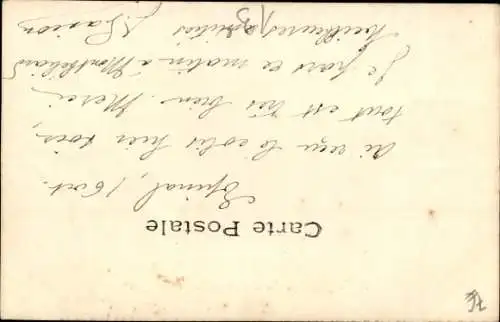 Carte Postale
Epinal, 16 oct.
Ai reçu le colis hier soir,
tout est très bien. Merci.
Je pars ce matin à Montbéliard
Meilleures amitiés